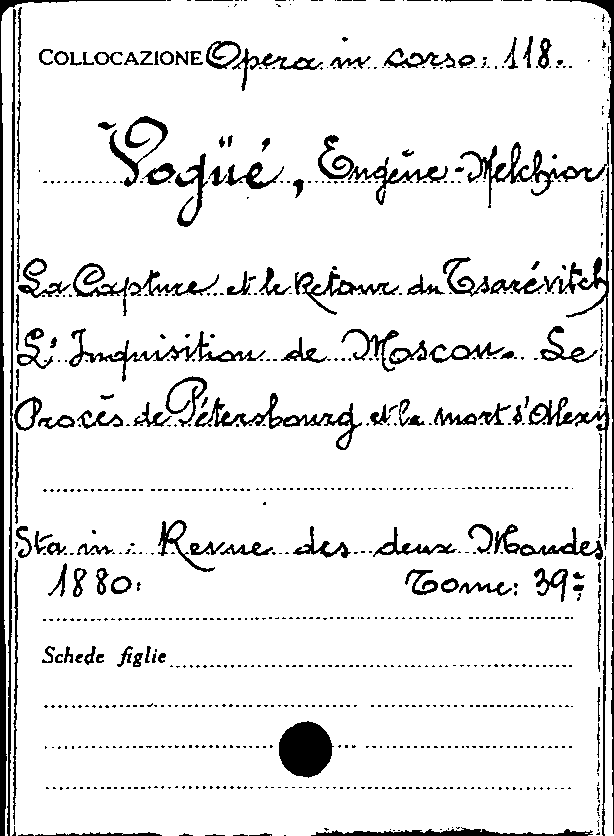 COLLOCAZIONE Opera in corso: 118.
Vogüé, Eugène-Melchior
La Capture et le Retour du Tsarévitch
L'Inquisition de Moscou. Le
Procès de Pétersbourg et la mort d'Alexis
Sta in: Revue des deux Mondes
1880: Tome: 39º
Schede figlie